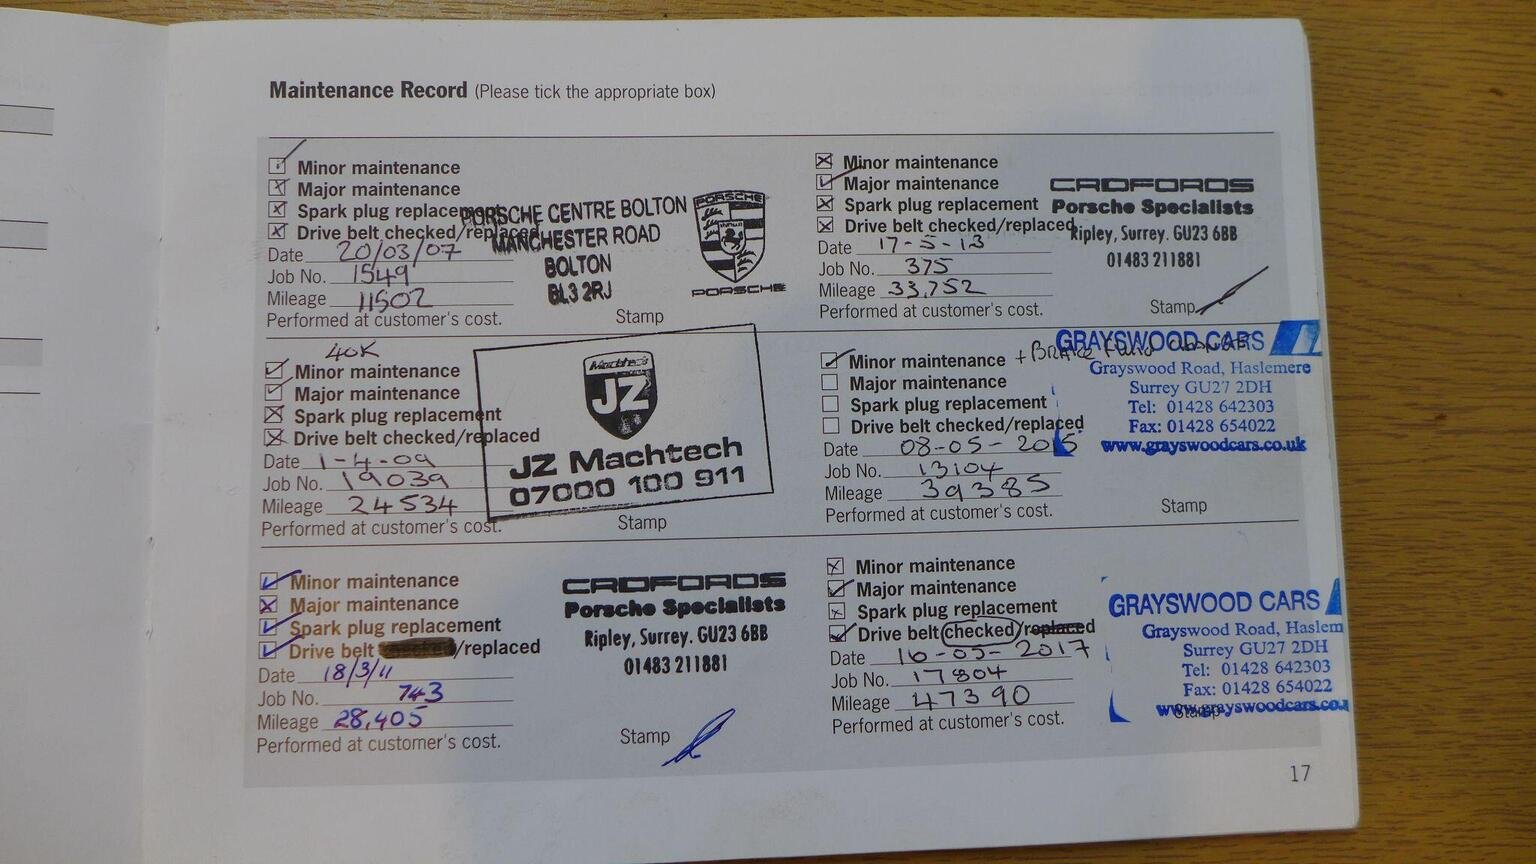 Maintenance Record (Please tick the appropriate box)
Minor maintenance
Major maintenance
Spark plug replacement
Drive belt checked/replaced
Date 20/03/07
Job No. 1549
Mileage 11502
Performed at customer's cost.
PORSCHE CENTRE BOLTON
MANCHESTER ROAD
BOLTON
BL3 2RJ
PORSCHE
PORSCHE
Stamp
40K
Minor maintenance
Major maintenance
Spark plug replacement
Drive belt checked/replaced
Date 1-4-09
Job No. 19039
Mileage 24534
Performed at customer's cost.
Machtech
JZ
JZ Machtech
07000 100 911
Stamp
Minor maintenance
Major maintenance
Spark plug replacement
Drive belt /replaced
Date 18/3/11
Job No. 743
Mileage 28,405
Performed at customer's cost.
CRDFORDS
Porsche Specialists
Ripley, Surrey. GU23 6BB
01483 211881
Stamp
Minor maintenance
Major maintenance
Spark plug replacement
Drive belt checked/replaced
Date 17-5-13
Job No. 375
Mileage 33,752
Performed at customer's cost.
CRDFORDS
Porsche Specialists
Ripley, Surrey. GU23 6BB
01483 211881
Stamp
Minor maintenance + BRAKE FLUID CHANGE
Major maintenance
Spark plug replacement
Drive belt checked/replaced
Date 08-05-2015
Job No. 13104
Mileage 39385
Performed at customer's cost.
GRAYSWOOD CARS
Grayswood Road, Haslemere
Surrey GU27 2DH
Tel: 01428 642303
Fax: 01428 654022
www.grayswoodcars.co.uk
Stamp
Minor maintenance
Major maintenance
Spark plug replacement
Drive belt checked/replaced
Date 16-05-2017
Job No. 17804
Mileage 47390
Performed at customer's cost.
GRAYSWOOD CARS
Grayswood Road, Haslem
Surrey GU27 2DH
Tel: 01428 642303
Fax: 01428 654022
www.grayswoodcars.co.u
Stamp
17